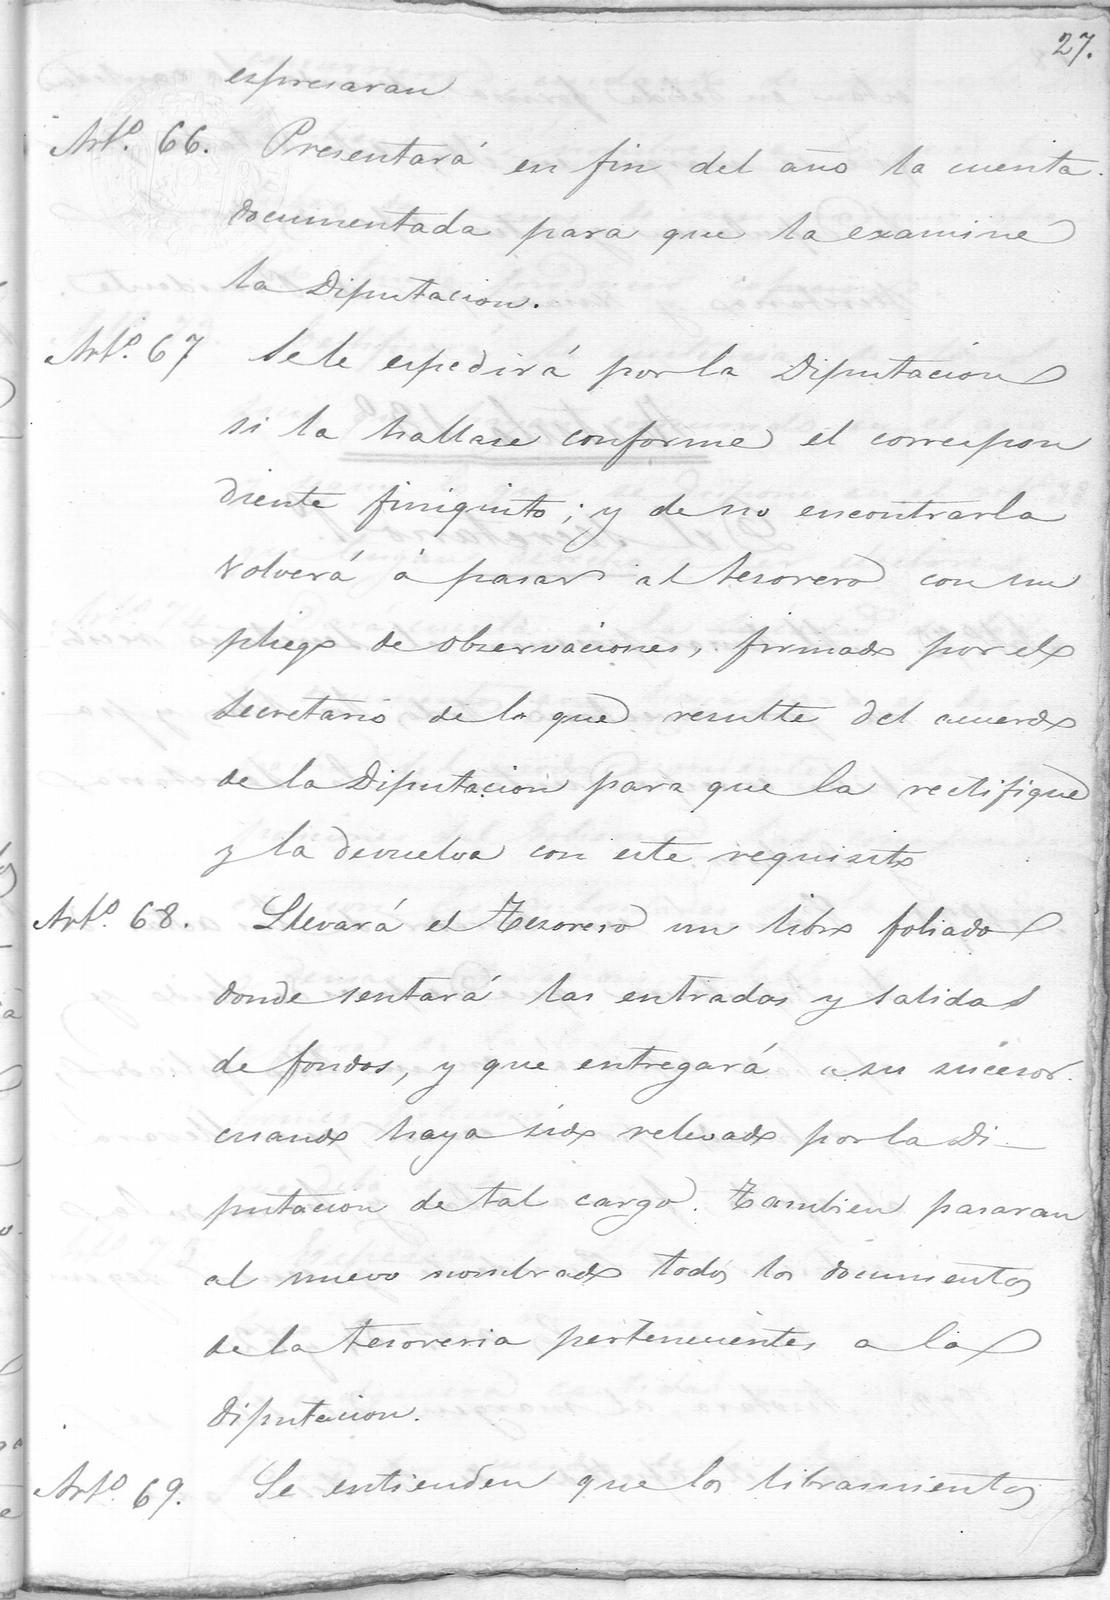 27.
espresaran
Artº. 66. Presentará en fin del año la cuenta
documentada para que la examine
la Diputacion.
Artº. 67 Se le espedirá por la Diputacion
si la hallase conforme el correspon
diente finiquito; y de no encontrarla
volverá á pasar al tesorero con un
pliego de observaciones, firmado por el
Secretario de lo que resulte del acuerdo
de la Diputacion para que la rectifique
y la devuelva con este requisito
Artº. 68. Llevará el Tesorero un libro foliado
donde sentará las entradas y salidas
de fondos, y que entregará a su sucesor
cuando haya sido relevado por la Di-
putacion de tal cargo. Tambien pasaran
al nuevo nombrado todos los documentos
de la tesoreria pertenecientes a la
diputacion.
Artº. 69. Se entienden que los libramientos